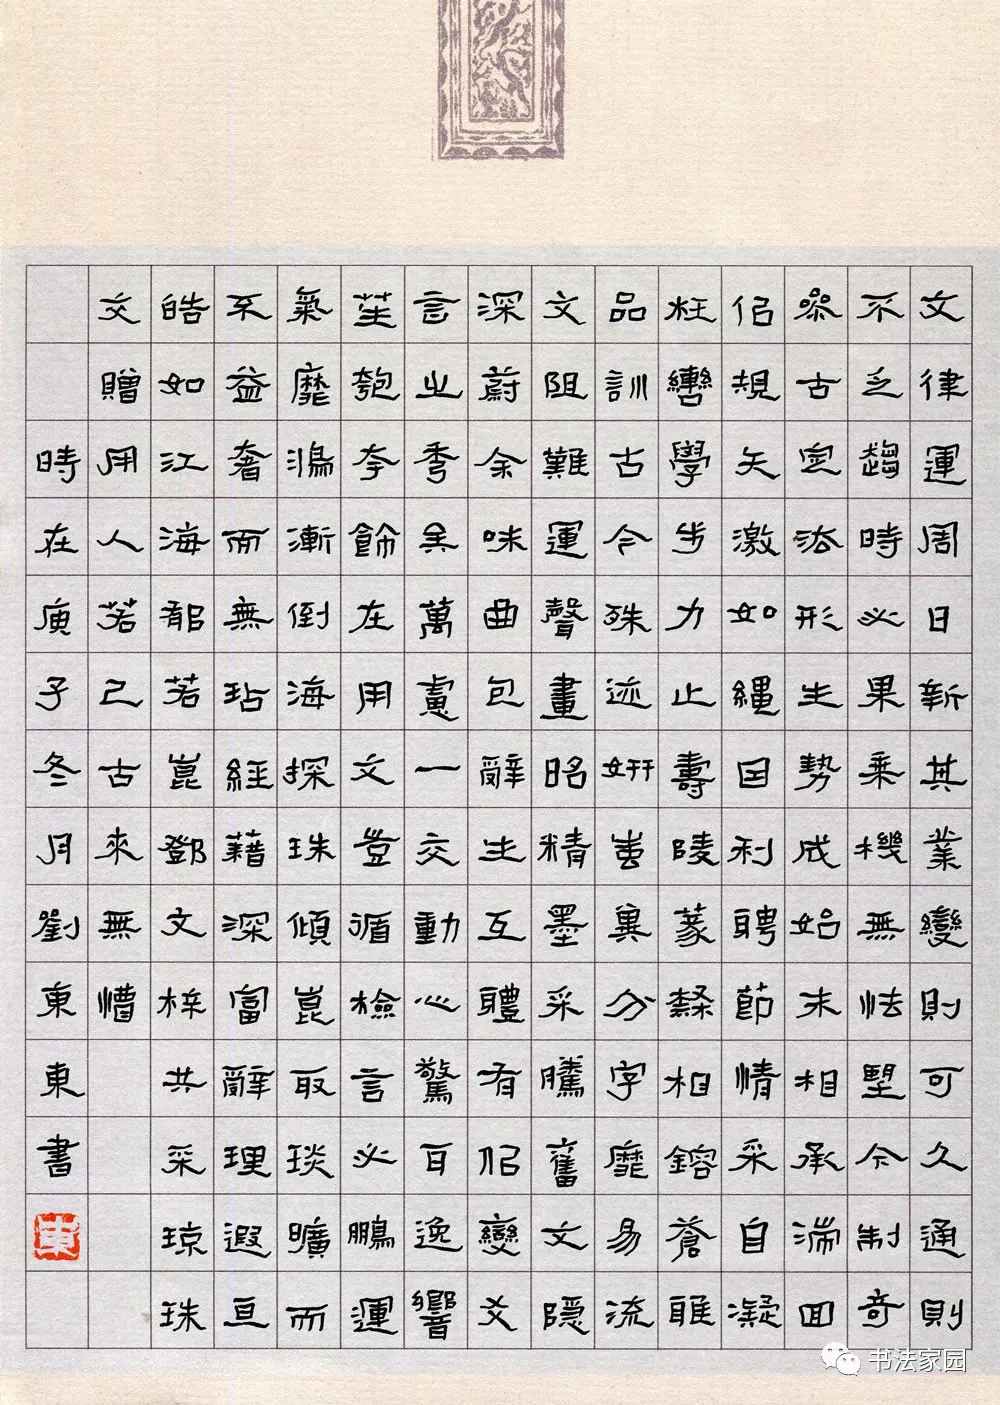 文律運周日新其業變則可久通則
不乏趨時必果乘機無怯望今制奇
參古定法形生勢成始末相承湍回
似規矢激如繩因利騁節情采自凝
枉轡學步力止壽陵篆隸相鎔蒼雎
品訓古今殊迹妍蚩異分字靡易流
文阻難運聲畫昭精墨采騰奮文隱
深蔚余味曲包辭生互體有似變爻
言之秀矣萬慮一交動心驚耳逸響
笙匏夸飾在用文豈循檢言必鵬運
氣靡鴻漸倒海探珠傾崑取琰曠而
不益奢而無玷經藉深富辭理遐亘
皓如江海郁若崑鄧文梓共采琼珠
交贈用人若己古來無懵
時在庚子冬月劉東東書
東
书法家园